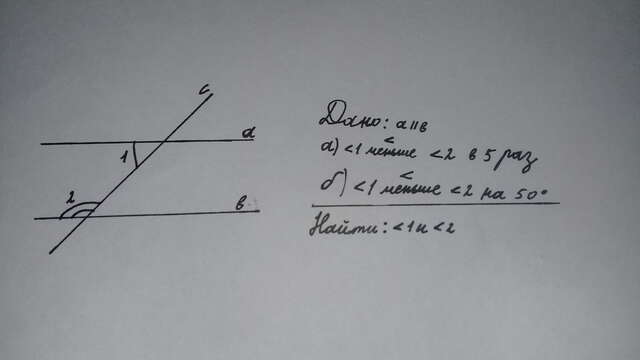 c
a
1
2
в
Дано: a||в
<
а) <1 меньше <2 в 5 раз
<
б) <1 меньше <2 на 50°
Найти: <1 и <2